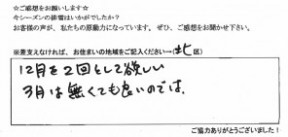 ☆ご感想をお願いします☆
今シーズンの排雪はいかがでしたか？
お客様の声が、私たちの原動力になっています。ぜひ、ご感想をお聞かせ下さい。
※差支えなければ、お住まいの地域をご記入ください→(北 区)
12月を2回として欲しい
3月は無くても良いのでは、
ご協力ありがとうございました！